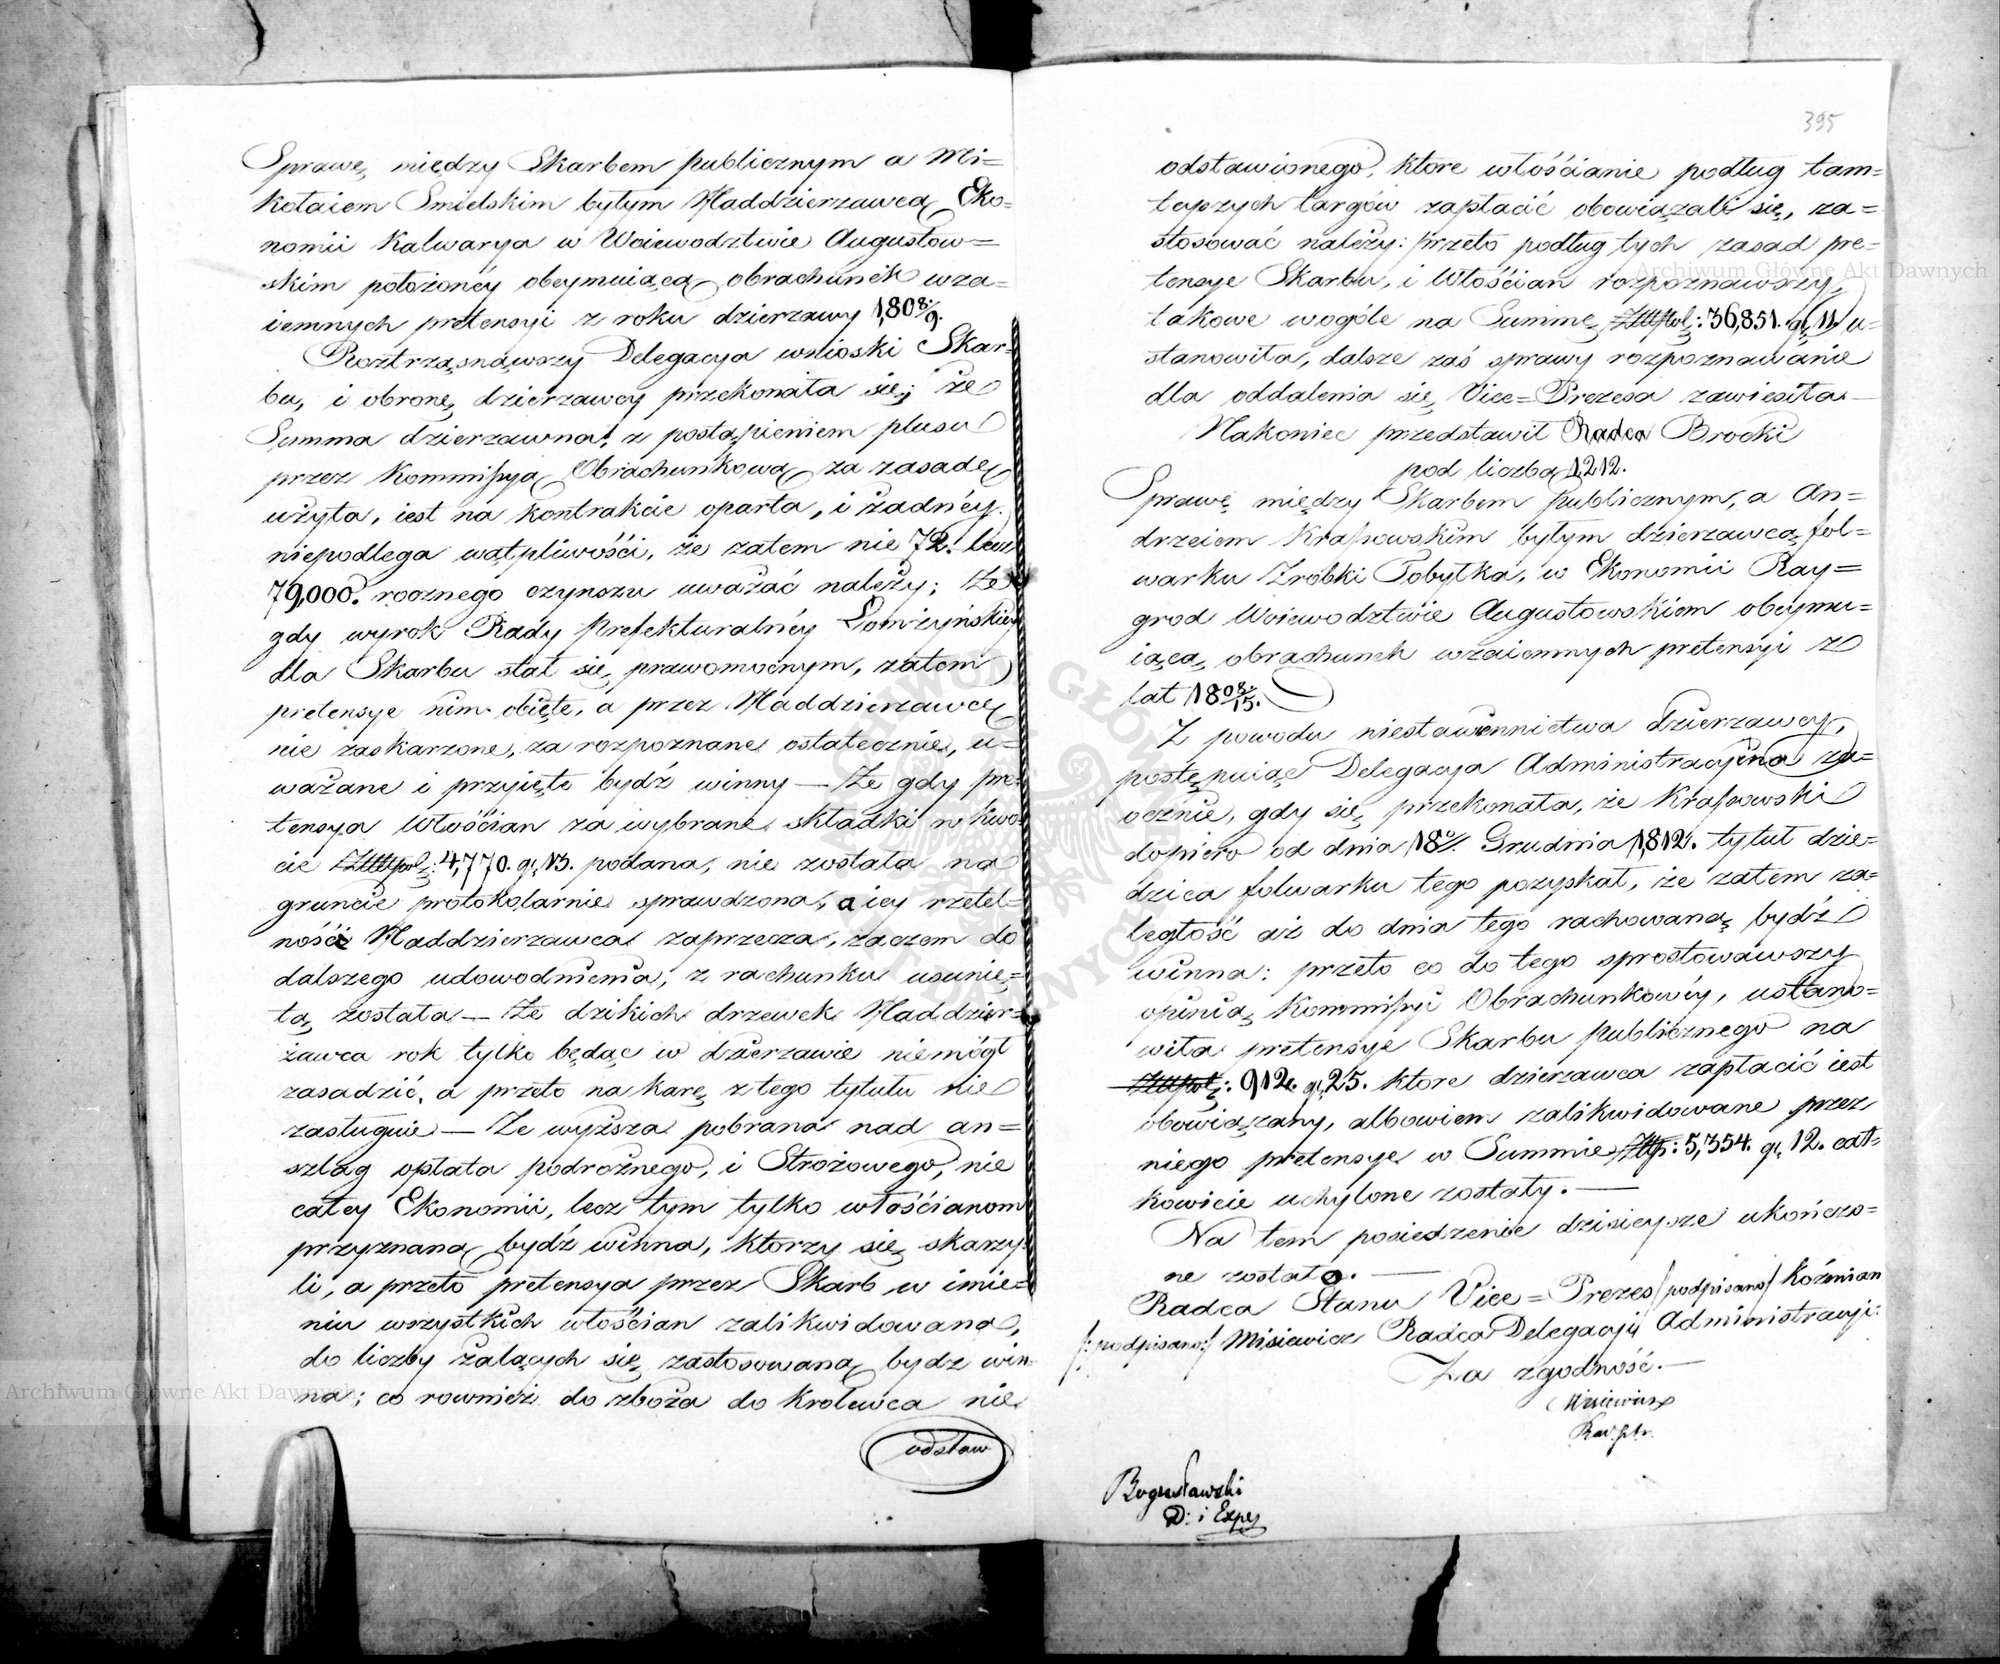 Sprawę, między Skarbem publicznym a Mi=
kołaiem Smielskim byłym Naddzierzawcą Eko=
nomii Kalwarya w Woiewodztwie Augustow=
skim położonéy obeymuiącą obrachunek wza=
iemnych pretensyi z roku dzierzawy 1808/9.
Roztrząsnąwszy Delegacya wnioski Skar=
bu, i obronę dzierzawcy przekonała się; że
Summa dzierzawna, z postąpieniem plusu
przez Kommissyą Obrachunkową za zasadę
użyta, iest na kontrakcie oparta, i żadnéy
niepodlega wątpliwośći, że zatem nie 72. lecz
79,000. rocznego czynszu uważać należy; Że
gdy wyrok Rady Prefekturalnéy Łomżyńskiey
dla Skarbu stał się prawomocnym, zatem
pretensye nim obięte, a przez Naddzierzawcę
nie zaskarzone, za rozpoznane ostatecznie, u=
ważane i przyięte bydź winny — Że gdy pre=
tensya Włośćian za wybrane składki w kwo=
cie Złtpol: 4,770. gr 13. podana, nie została na
gruncie protokolarnie sprawdzona, a iey rzetel=
ność Naddzierzawca zaprzecza, zaczem do
dalszego udowodnienia, z rachunku usunię=
tą została — Że dzikich drzewek Naddzier=
żawca rok tylko będąc w dzierzawie niemógł
zasadzić, a przeto na karę z tego tytułu nie
zasługuie — Że wyższa pobrana nad an=
szlag opłata podrożnego, i Strożowego, nie
całey Ekonomii, lecz tym tylko włośćianom
przyznaną bydź winna, ktorzy się skarzy=
li, a przeto pretensya przez Skarb w imie=
niu wszystkich włośćian zalikwidowana,
do liczby żalących się zastosowaną bydz win=
na; co rownież do zboża do Krolewca nie
odstaw
395
odstawionego, ktore włośćianie podług tam=
teyszych targów zapłacić obowiązali się, za=
stosować należy: przeto podług tych zasad pre=
tensye Skarbu, i Włośćian rozpoznawszy,
takowe wogóle na Summę Złtpol: 36,851. gr 11. u=
stanowiła, dalsze zaś sprawy rozpoznawanie
dla oddalenia się Vice=Prezesa zawiesiła —
Nakoniec przedstawił Radca Brocki
pod liczbą 1212.
Sprawę między Skarbem publicznym, a An=
drzeiem Krassowskim byłym dzierzawcą fol=
warku Zrobki Pobyłka, w Ekonomii Ray=
grod Woiewodztwie Augustowskiem obeymu=
iącą obrachunek wzaiemnych pretensyi z
lat 1808/15.
Z powodu niestawiennictwa dzierzawcy,
postępuiąc Delegacya Administracyina za=
ocznie, gdy się przekonała, że Krassowski
dopiero od dnia 18o/ Grudnia 1812. tytuł dzie=
dzica folwarku tego pozyskał, że zatem za=
ległość aż do dnia tego rachowaną bydź
winna: przeto co do tego sprostowawszy
opinią Kommissyi Obrachunkowéy, ustano=
wiła pretensye Skarbu publicznego na
Złtpol: 912. gr 25. ktore dzierzawca zapłacić iest
obowiązany, albowiem zalikwidowane przez
niego pretensye w Summie Złtp: 5,354. gr 12. cał=
kowicie uchylone zostały. —
Na tem posiedzenie dzisieysze ukończo=
ne zostało. —
Radca Stanu Vice=Prezes /podpisano/ Koźmian
/:podpisano:/ Misiewicz Radca Delegacyi Administracyi:
Za zgodność. —
Misiewicz
Bogusławski
D: i Exped
Archiwum Główne Akt Dawnych
Archiwum Główne Akt Dawnych